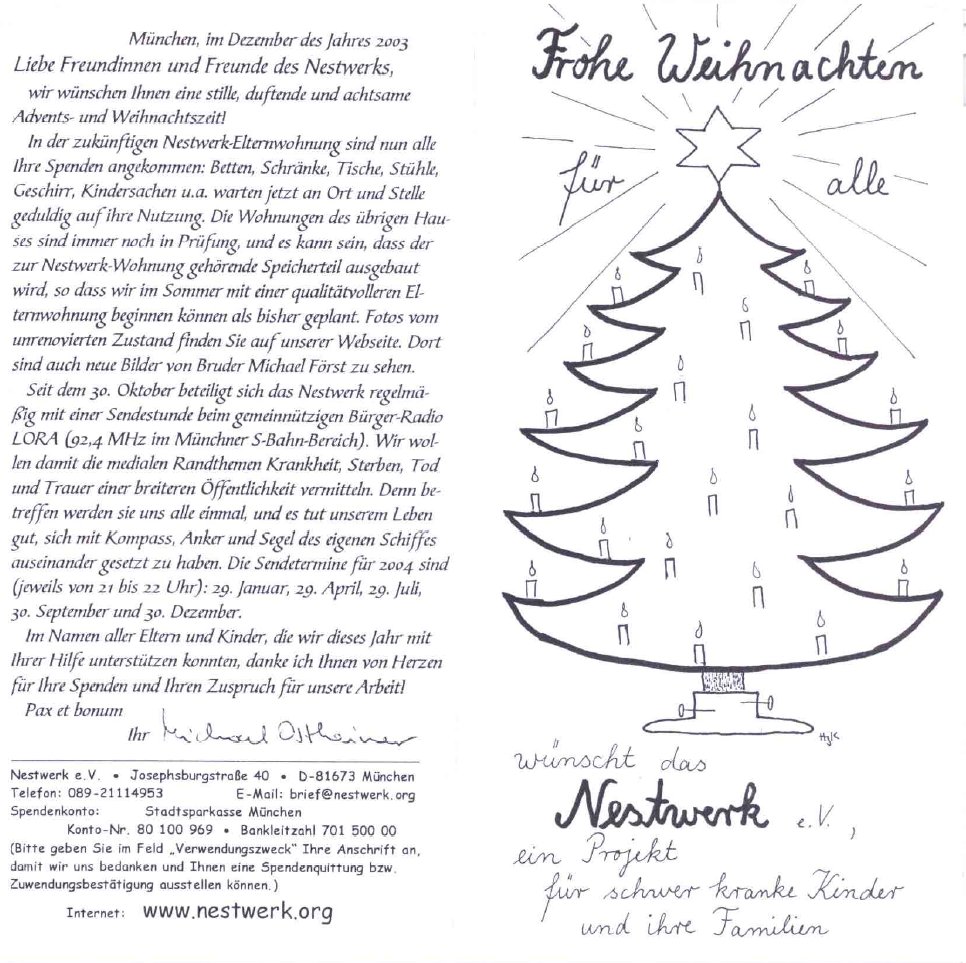 München, im Dezember des Jahres 2003
Liebe Freundinnen und Freunde des Nestwerks,
wir wünschen Ihnen eine stille, duftende und achtsame
Advents- und Weihnachtszeit!
In der zukünftigen Nestwerk-Elternwohnung sind nun alle
Ihre Spenden angekommen: Betten, Schränke, Tische, Stühle,
Geschirr, Kindersachen u.a. warten jetzt an Ort und Stelle
geduldig auf ihre Nutzung. Die Wohnungen des übrigen Hau-
ses sind immer noch in Prüfung, und es kann sein, dass der
zur Nestwerk-Wohnung gehörende Speicherteil ausgebaut
wird, so dass wir im Sommer mit einer qualitätvolleren El-
ternwohnung beginnen können als bisher geplant. Fotos vom
unrenovierten Zustand finden Sie auf unserer Webseite. Dort
sind auch neue Bilder von Bruder Michael Först zu sehen.
Seit dem 30. Oktober beteiligt sich das Nestwerk regelmä-
ßig mit einer Sendestunde beim gemeinnützigen Bürger-Radio
LORA (92,4 MHz im Münchner S-Bahn-Bereich). Wir wol-
len damit die medialen Randthemen Krankheit, Sterben, Tod
und Trauer einer breiteren Öffentlichkeit vermitteln. Denn be-
treffen werden sie uns alle einmal, und es tut unserem Leben
gut, sich mit Kompass, Anker und Segel des eigenen Schiffes
auseinander gesetzt zu haben. Die Sendetermine für 2004 sind
(jeweils von 21 bis 22 Uhr): 29. Januar, 29. April, 29. Juli,
30. September und 30. Dezember.
Im Namen aller Eltern und Kinder, die wir dieses Jahr mit
Ihrer Hilfe unterstützen konnten, danke ich Ihnen von Herzen
für Ihre Spenden und Ihren Zuspruch für unsere Arbeit!
Pax et bonum
Ihr Michael Ostheimer
Nestwerk e.V. • Josephsburgstraße 40 • D-81673 München
Telefon: 089-21114953 E-Mail: brief@nestwerk.org
Spendenkonto: Stadtsparkasse München
Konto-Nr. 80 100 969 • Bankleitzahl 701 500 00
(Bitte geben Sie im Feld „Verwendungszweck" Ihre Anschrift an,
damit wir uns bedanken und Ihnen eine Spendenquittung bzw.
Zuwendungsbestätigung ausstellen können.)
Internet: www.nestwerk.org
Frohe Weihnachten
für alle
wünscht das
Nestwerk e.V.,
ein Projekt
für schwer kranke Kinder
und ihre Familien